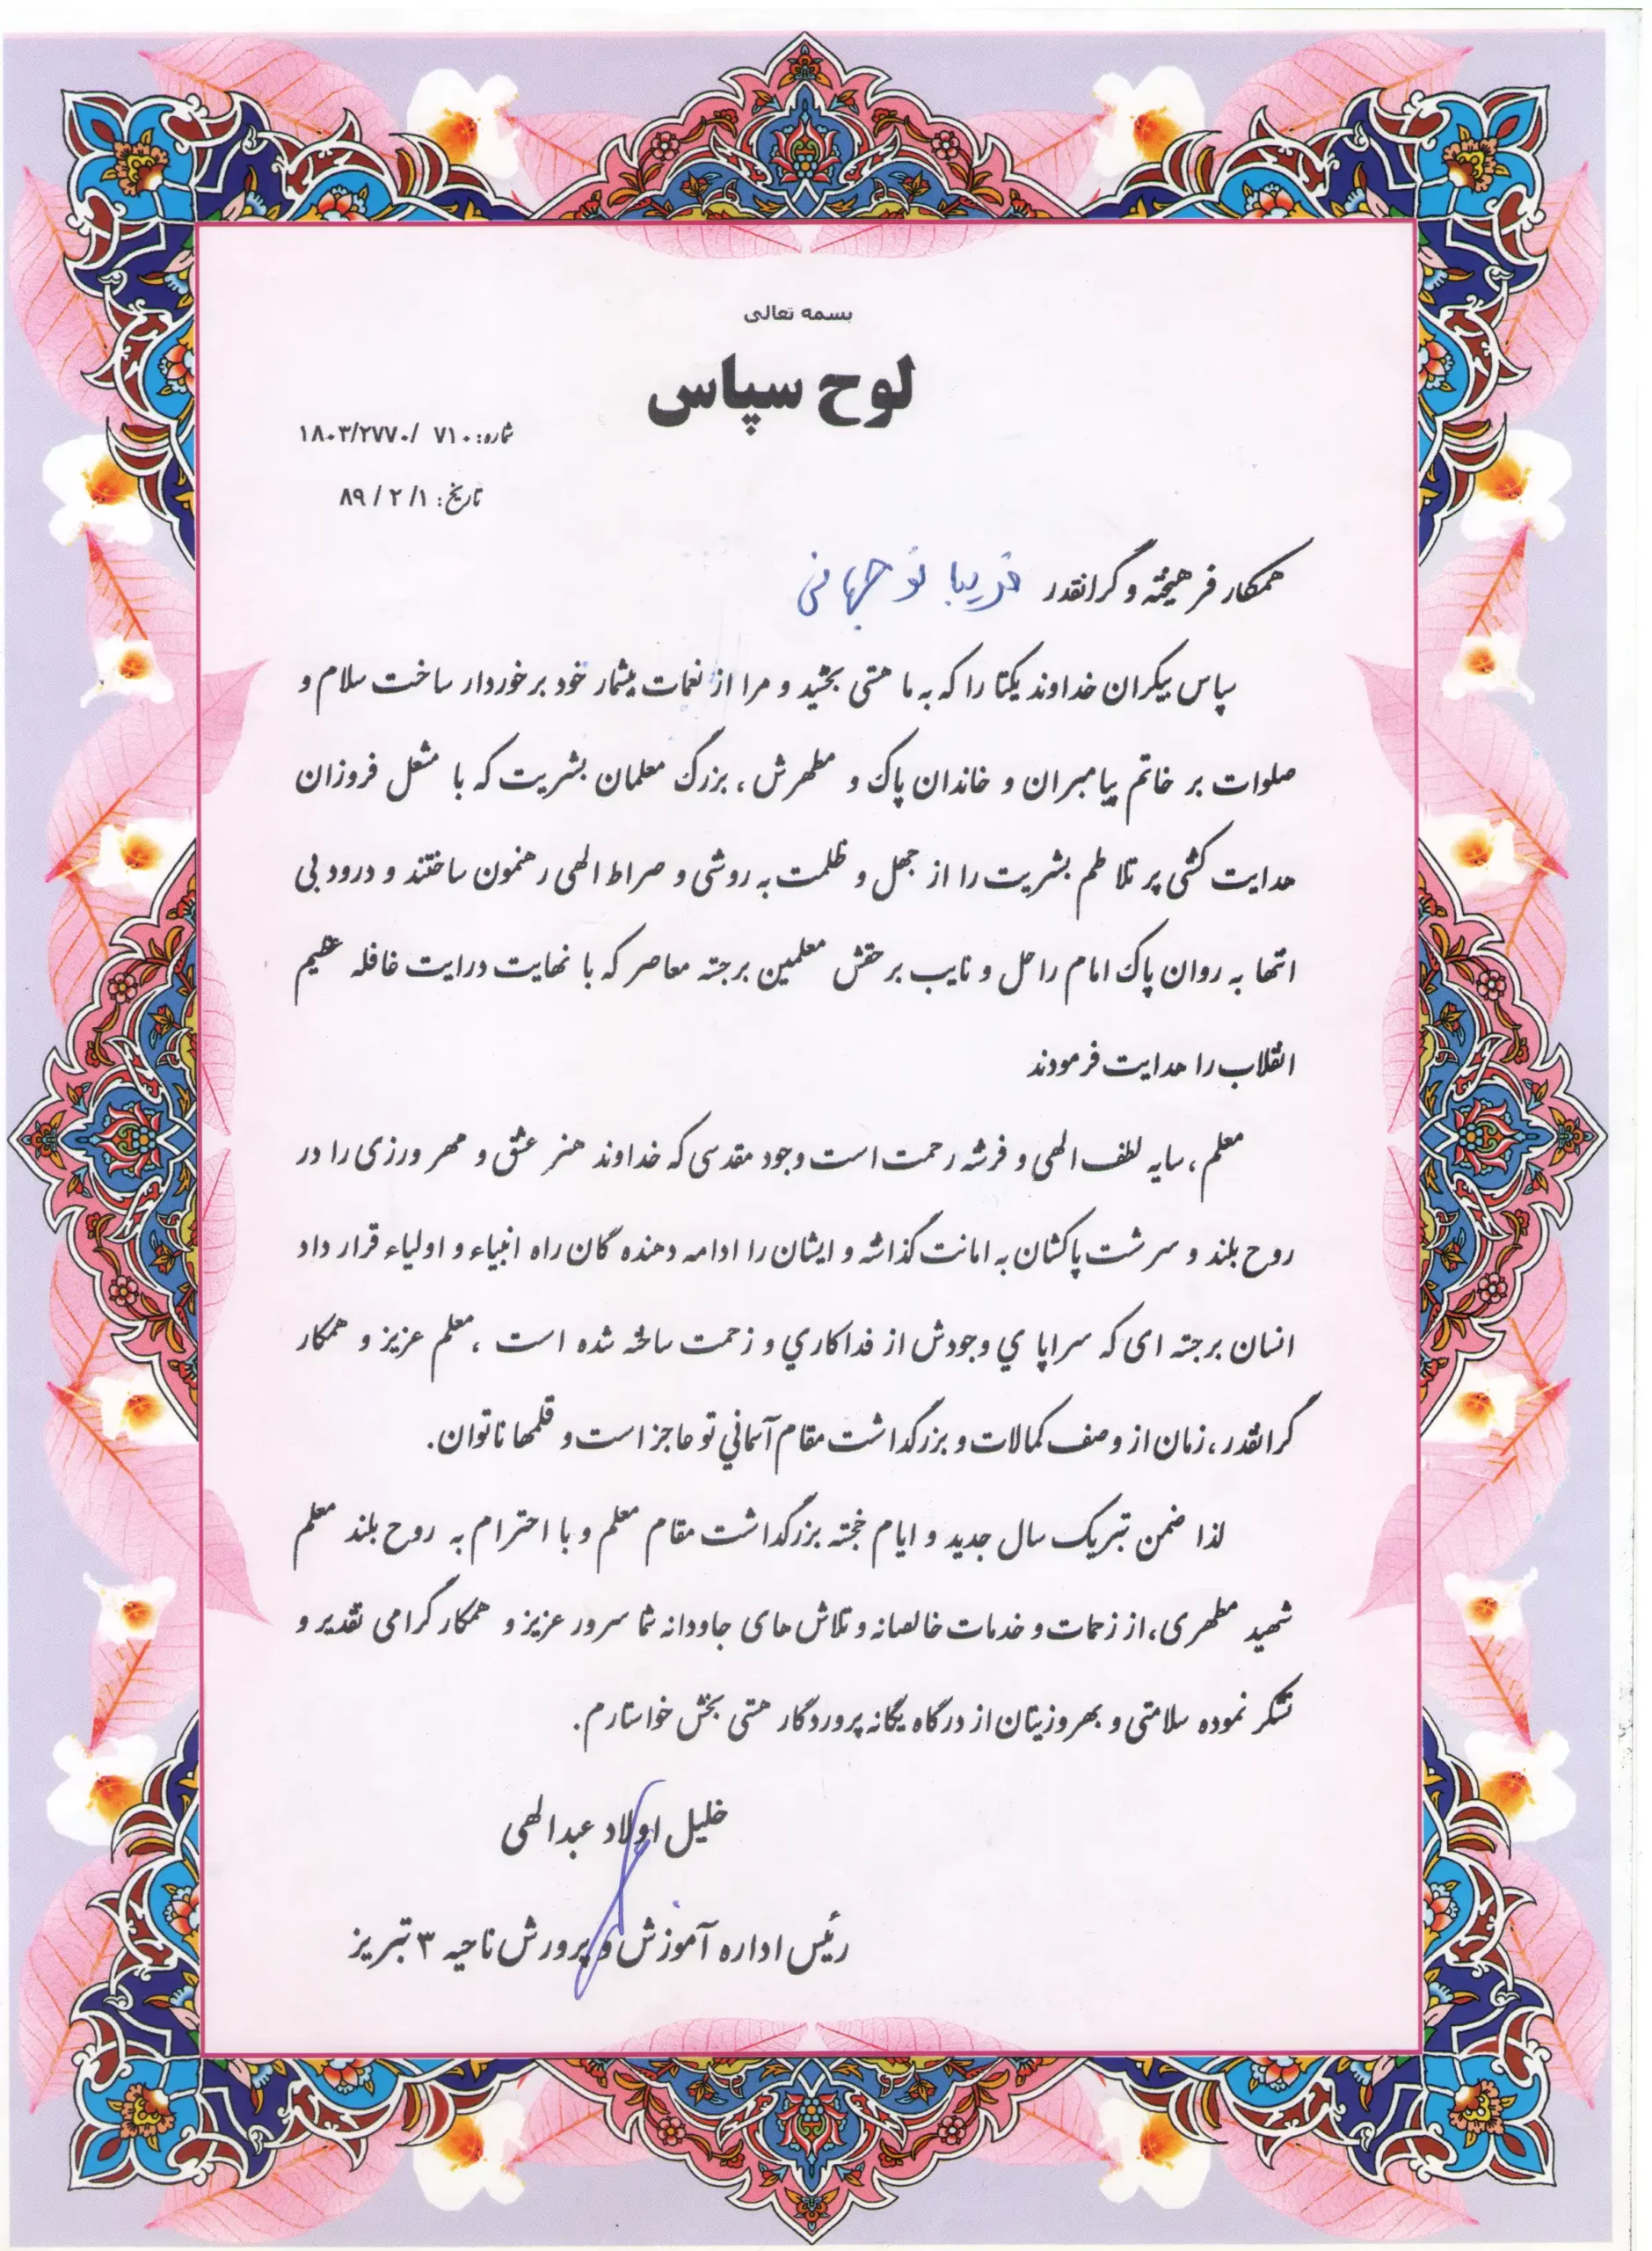 بسمه تعالی
لوح سپاس
شماره: ۷۱۰ /۱۸۰۳/۲۷۷۰
تاریخ: ۸۹/۲/۱
همکار فرهیخته و گرانقدر فریبا نوجهانی
سپاس بیکران خداوند یکتا را که به ما هستی بخشید و مرا از نعمات بیشمار خود برخوردار ساخت سلام و
صلوات بر خاتم پیامبران و خاندان پاک و مطهرش ، بزرگ معلمان بشریت که با مشعل فروزان
هدایت کشتی پر تلاطم بشریت را از جهل و ظلمت به روشنی و صراط الهی رهنمون ساختند و درود بی
انتها به روان پاک امام راحل و نایب برحقش معلمین برجسته معاصر که با نهایت درایت غافله عظیم
انقلاب را هدایت فرمودند
معلم ، سایه لطف الهی و فرشته رحمت است وجود مقدسی که خداوند هنر عشق و مهرورزی را در
روح بلند و سرشت پاکشان به امانت گذاشته و ایشان را ادامه دهنده گان راه انبیاء و اولیاء قرار داد
انسان برجسته ای که سراپا ي وجودش از فداکاري و زحمت ساخته شده است ، معلم عزیز و همکار
گرانقدر ، زمان از وصف کمالات و بزرگداشت مقام آسماني تو عاجز است و قلمها ناتوان.
لذا ضمن تبریک سال جدید و ایام خجسته بزرگداشت مقام معلم و با احترام به روح بلند معلم
شهید مطهری ، از زحمات و خدمات خالصانه و تلاش های جاودانه شما سرور عزیز و همکار گرامی تقدیر و
تشکر نموده سلامتی و بهروزیتان از درگاه یگانه پروردگار هستی بخش خواستارم.
خلیل اولاد عبدالهی
رئیس اداره آموزش و پرورش ناحیه ۳ تبریز